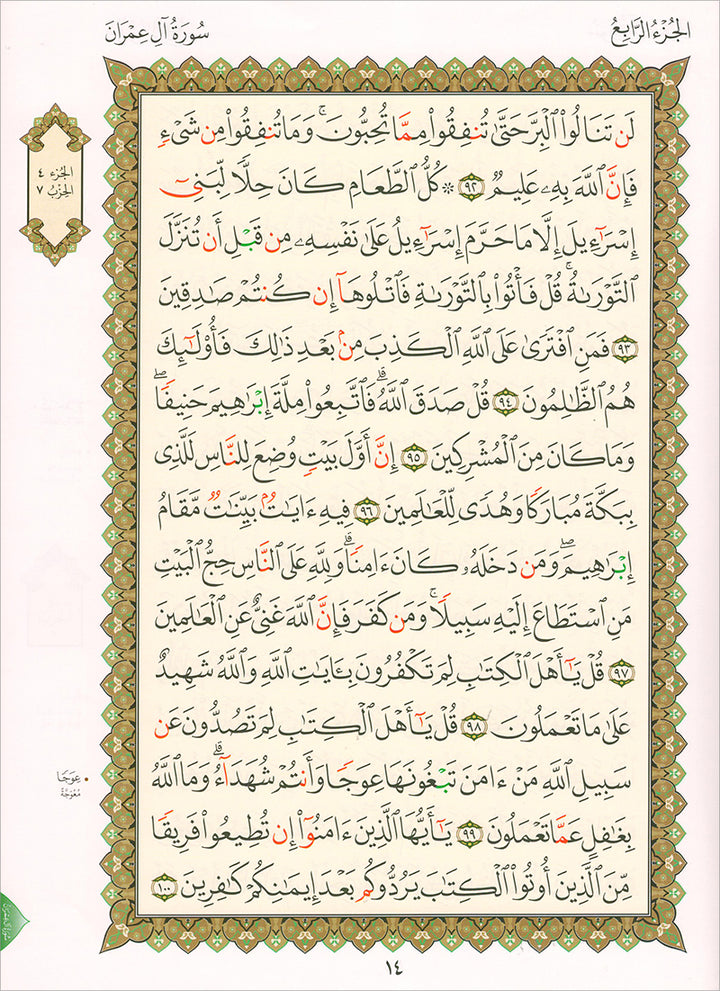 الجُزْءُ الرَّابِعُ
سُورَةُ آلِ عِمْرَانَ
لَن تَنَالُوا۟ ٱلْبِرَّ حَتَّىٰ تُنفِقُوا۟ مِمَّا تُحِبُّونَ ۚ وَمَا تُنفِقُوا۟ مِن شَىْءٍ
فَإِنَّ ٱللَّهَ بِهِۦ عَلِيمٌ ٩٢ ۞ كُلُّ ٱلطَّعَامِ كَانَ حِلًّا لِّبَنِىٓ
إِسْرَٰٓءِيلَ إِلَّا مَا حَرَّمَ إِسْرَٰٓءِيلُ عَلَىٰ نَفْسِهِۦ مِن قَبْلِ أَن تُنَزَّلَ
ٱلتَّوْرَىٰةُ ۗ قُلْ فَأْتُوا۟ بِٱلتَّوْرَىٰةِ فَٱتْلُوهَآ إِن كُنتُمْ صَٰدِقِينَ
٩٣ فَمَنِ ٱفْتَرَىٰ عَلَى ٱللَّهِ ٱلْكَذِبَ مِنۢ بَعْدِ ذَٰلِكَ فَأُو۟لَٰٓئِكَ
هُمُ ٱلظَّٰلِمُونَ ٩٤ قُلْ صَدَقَ ٱللَّهُ ۗ فَٱتَّبِعُوا۟ مِلَّةَ إِبْرَٰهِيمَ حَنِيفًا ۖ
وَمَا كَانَ مِنَ ٱلْمُشْرِكِينَ ٩٥ إِنَّ أَوَّلَ بَيْتٍ وُضِعَ لِلنَّاسِ لَلَّذِى
بِبَكَّةَ مُبَارَكًا وَهُدًى لِّلْعَٰلَمِينَ ٩٦ فِيهِ ءَايَٰتٌۢ بَيِّنَٰتٌ مَّقَامُ
إِبْرَٰهِيمَ ۖ وَمَن دَخَلَهُۥ كَانَ ءَامِنًا ۗ وَلِلَّهِ عَلَى ٱلنَّاسِ حِجُّ ٱلْبَيْتِ
مَنِ ٱسْتَطَاعَ إِلَيْهِ سَبِيلًا ۚ وَمَن كَفَرَ فَإِنَّ ٱللَّهَ غَنِىٌّ عَنِ ٱلْعَٰلَمِينَ
٩٧ قُلْ يَٰٓأَهْلَ ٱلْكِتَٰبِ لِمَ تَكْفُرُونَ بِـَٔايَٰتِ ٱللَّهِ وَٱللَّهُ شَهِيدٌ
عَلَىٰ مَا تَعْمَلُونَ ٩٨ قُلْ يَٰٓأَهْلَ ٱلْكِتَٰبِ لِمَ تَصُدُّونَ عَن
سَبِيلِ ٱللَّهِ مَنْ ءَامَنَ تَبْغُونَهَا عِوَجًا وَأَنتُمْ شُهَدَآءُ ۗ وَمَا ٱللَّهُ
بِغَٰفِلٍ عَمَّا تَعْمَلُونَ ٩٩ يَٰٓأَيُّهَا ٱلَّذِينَ ءَامَنُوٓا۟ إِن تُطِيعُوا۟ فَرِيقًا
مِّنَ ٱلَّذِينَ أُوتُوا۟ ٱلْكِتَٰبَ يَرُدُّوكُم بَعْدَ إِيمَٰنِكُمْ كَٰفِرِينَ ١٠٠
الجُزء ٤
الحِزْبُ ٧
• عِوَجًا
مُعْوَجَّةً
١٤